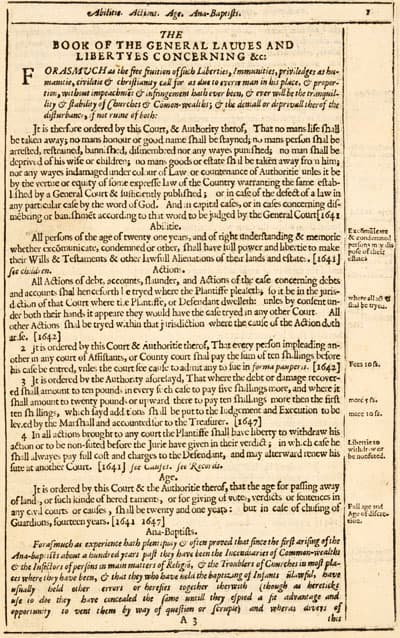 Abilitie. Actions. Age. Ana-Baptists. 1
THE
BOOK OF THE GENERAL LAUUES AND
LIBERTYES CONCERNING &c:
FORASMUCH as the free fruition of such Liberties, Immunities, priviledges as hu-
manitie, civilitie & christianity call for as due to everie man in his place, & propor-
tion, without impeachmēt & infringement hath ever been, & ever will be the tranquil-
lity & stability of Churches & Comon-wealths; & the deniall or deprivall therof the
disturbance, if not ruine of both:
It is therfore ordered by this Court, & Authority therof, That no mans life shall
be taken away; no mans honour or good name shall be stayned; no mans person shal be
arrested, restrained, bannished, dismembred nor any wayes punished; no man shall be
deprived of his wife or children; no mans goods or estate shal be taken away from him;
nor any wayes indamaged under colour of Law or countenance of Authoritie unles it be
by the vertue or equity of some expresse law of the Country warranting the same estab-
lished by a General Court & sufficiently published; or in case of the defect of a law in
any particular case by the word of God. And in capital cases, or in cases concerning dis-
mēbring or banishmēt according to that word to be judged by the General Court [1641
Abilitie.
All persons of the age of twenty one years, and of right understanding & memorie
whether excōmunicate, condemned or other, shall have full power and libertie to make
their Wills & Testaments & other lawfull Alienations of their lands and estate. [1641]
see children.
Excōmunicate
& condemned
persons may dis
pose of their
estates
Actions.
All Actions of debt, accounts, slaunder, and Actions of the case concerning debts
and accounts shal henceforth be tryed where the Plantiffe pleaseth; so it be in the juris-
diction of that Court where the Plantiffe, or Defendant dwelleth: unles by consent un-
der both their hands it appeare they would have the case tryed in any other Court. All
other Actions shal be tryed within that jurisdiction where the cause of the Action doth
arise. [1642]
where all act s
shal be tryed.
2 It is ordered by this Court & Authoritie therof, That every person impleading an-
other in any court of Assistants, or County court shal pay the sum of ten shillings before
his case be entred, unles the court see cause to admit any to sue in forma pauperis. [1642]
Fees 10 s.
3 It is ordered by the Authority aforesayd, That where the debt or damage recover-
ed shall amount to ten pounds in every such case to pay five shillings more, and where it
shall amount to twenty pounds or upward there to pay ten shillings more then the first
ten shillings, which sayd additions shall be put to the Judgement and Execution to be
levied by the Marshall and accounted for to the Treasurer. [1647]
more 5 s.
more 10 s.
4 In all actions brought to any court the Plantiffe shall have liberty to withdraw his
action or to be non-suted before the Jurie have given in their verdict; in which case he
shall alwayes pay full cost and charges to the Defendant, and may afterward renew his
sute at another Court. [1641] see Causes. see Records.
Libertie to
withdraw or
be nonsuted.
Age.
It is ordered by this Court & the Authoritie therof, that the age for passing away
of land, or such kinde of hereditaments, or for giving of votes, verdicts or sentences in
any civil courts or causes, shall be twenty and one years: but in case of chusing of
Guardions, fourteen years. [1641 1647]
Full age and
Age of discre-
tion.
Ana-Baptists.
Forasmuch as experience hath plentifully & often proved that since the first arising of the
Ana-baptists about a hundred years past they have been the Incendiaries of Common-wealths
& the Infectors of persons in main matters of Religiō, & the Troublers of Churches in most pla-
ces where they have been, & that they who have held the baptizing of Infants ūlawful, have
usually held other errors or heresies together therwith (though as hereticks
use to doe they have concealed the same untill they espied a fit advantage and
opportunity to vent them by way of question or scruple) and wheras divers of
A 3 this